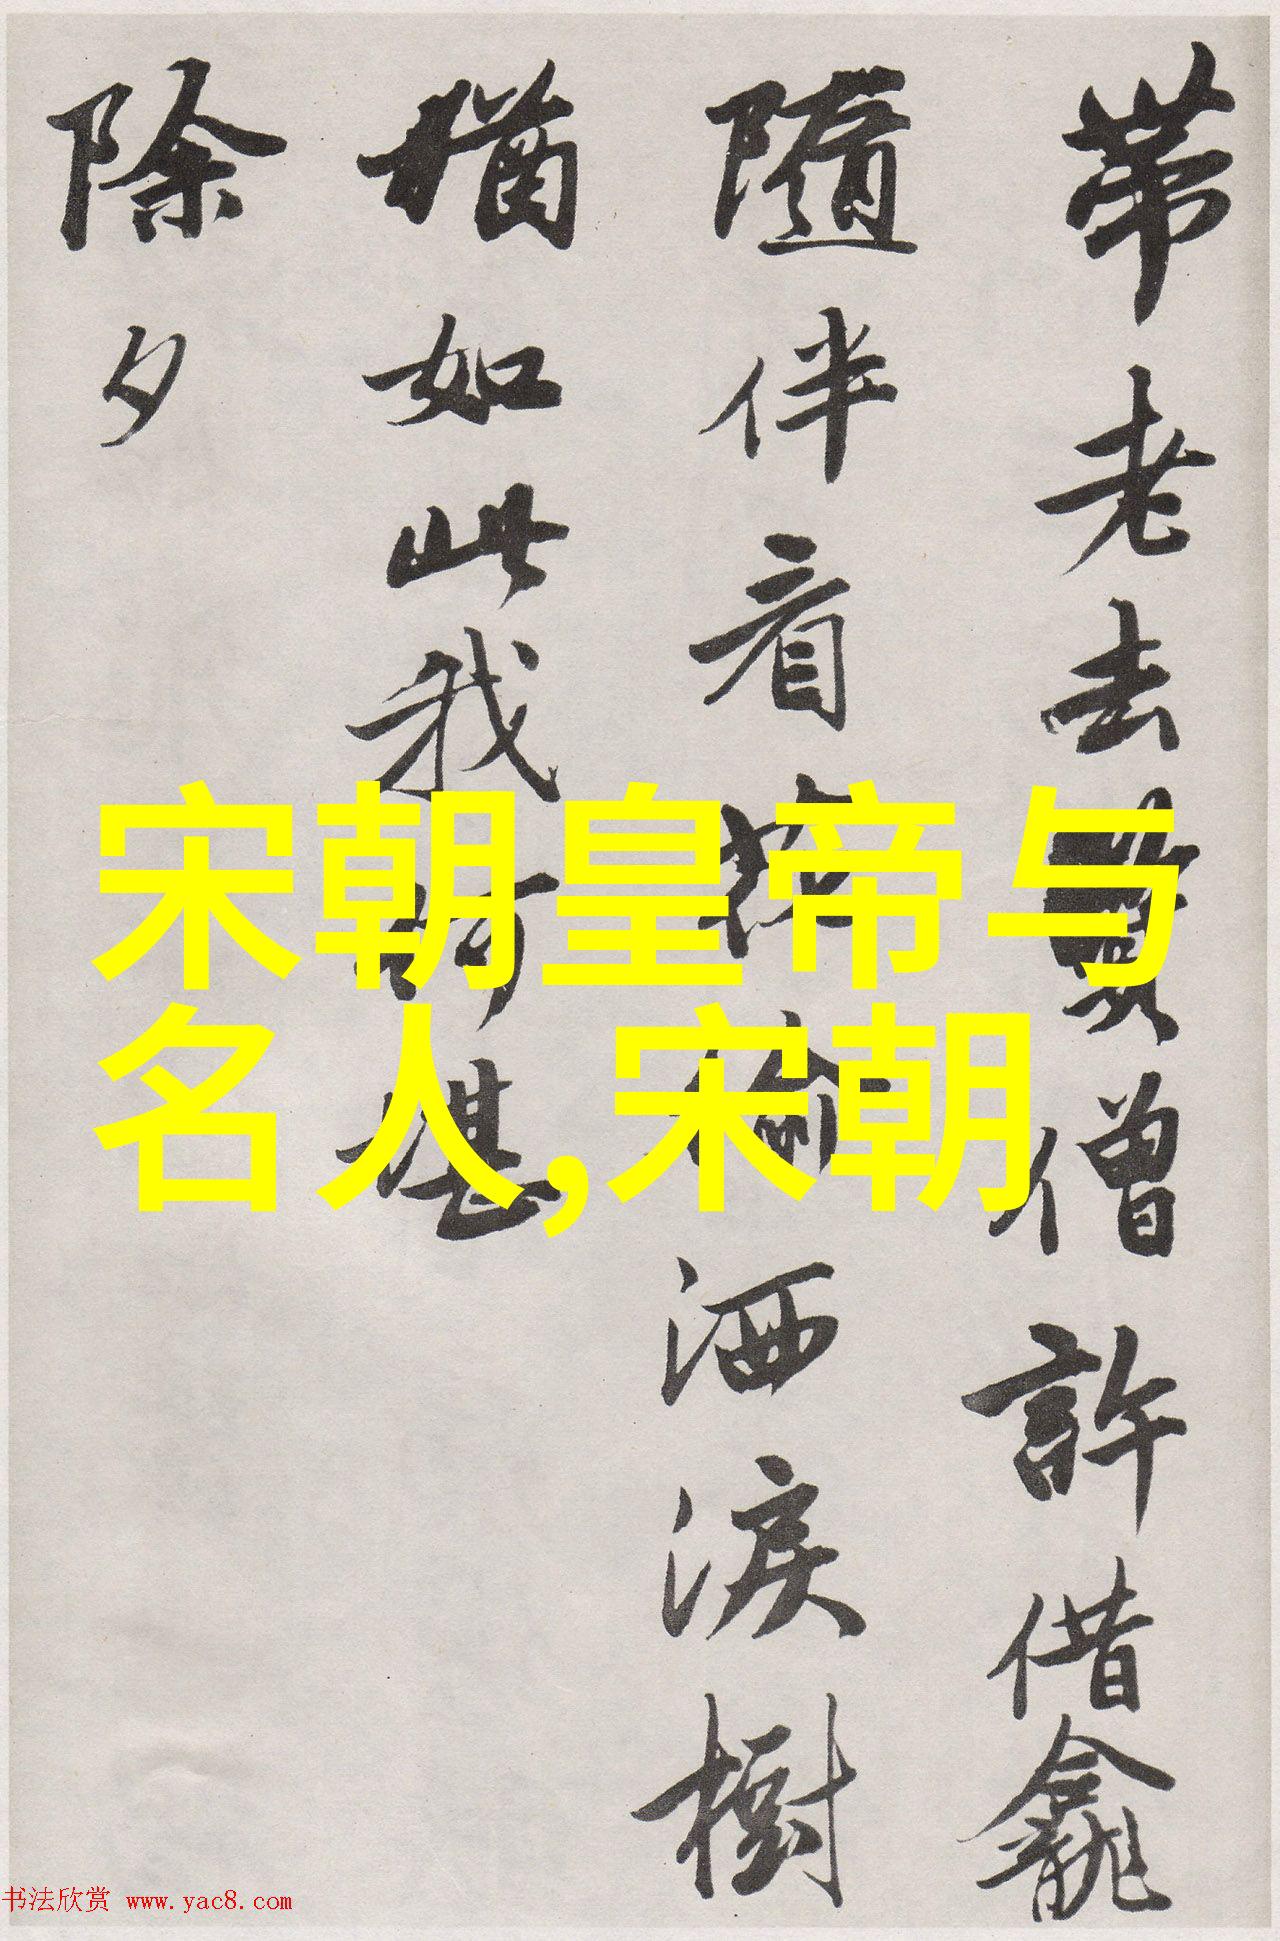 帶老去僧許借龕
隨伴看洒淚樹
猶如此我何堪
除夕
宋朝皇帝与
名人,宋朝
书法欣赏 www.yac8.com